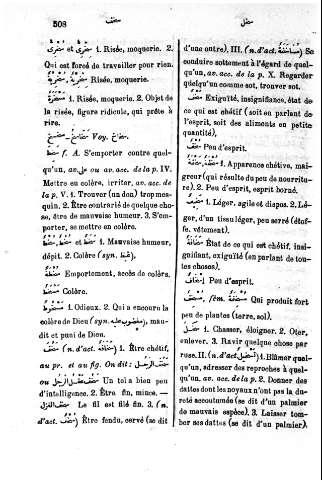 508
سخف
سخل
سُخْرِىّ et سِخْرِىّ 1. Risée, moquerie. 2.
Qui est forcé de travailler pour rien.
سُخْرِيَّة Risée, moquerie.
1. Risée, moquerie. 2. Objet de
la risée, figure ridicule, qui prête à
rire.
Voy.
سخط f. A. S'emporter contre quel-
qu'un, av. على ou av. acc. de la p. IV.
Mettre en colère, irriter, av. acc. de
la p. V. 1. Trouver (un don) trop mes-
quin. 2. Être contrarié de quelque cho-
se, être de mauvaise humeur. 3. S'em-
porter, se mettre en colère.
سخط et سخط 1. Mauvaise humeur,
dépit. 2. Colère (syn.
سخطة Emportement, accès de colère.
Colère.
مسخوط 1. Odieux. 2. Qui a encouru la
colère de Dieu (syn. مغضوب عليه), mau-
dit et puni de Dieu.
سخف (n. d'act. سخافة) 1. Être chétif,
au pr. et au fig. On dit: سخف الرجل
ou سخف عقل الرجل Un tel a bien peu
d'intelligence. 2. Être fin, mince. —
سخف الغزل Le fil est filé fin. 3. (n.
d'act. سخف) Être fendu, servé (se dit
d'une outre). III. (n. d'act. مساخفة) Se
conduire sottement à l'égard de quel-
qu'un, av. acc. de la p. X. Regarder
quelqu'un comme sot, trouver sot.
سخف Exiguïté, insignifiance, état de
ce qui est chétif (soit en parlant de
l'esprit, soit des aliments en petite
quantité).
سخف Peu d'esprit.
سخفة 1. Apparence chétive, mai-
greur (qui résulte du peu de nourritu-
re). 2. Peu d'esprit, esprit borné.
سخيف 1. Léger, agile et dispos. 2. Lé-
ger, d'un tissu léger, peu serré (étof-
fe, vêtement).
سخافة État de ce qui est chétif, insi-
gnifiant, exiguïté (en parlant de tou-
tes choses).
Peu d'esprit.
fém. مسخفة Qui produit fort
peu de plantes (terre, sol).
سخل 1. Chasser, éloigner. 2. Oter,
enlever. 3. Ravir quelque chose par
ruse. II. (n. d'act. تسخيل) 1. Blâmer quel-
qu'un, adresser des reproches à quel-
qu'un, av. acc. de la p. 2. Donner des
dattes dont les noyaux n'ont pas la du-
reté accoutumée (se dit d'un palmier
de mauvais espèce). 3. Laisser tom-
ber ses dattes (se dit d'un palmier).